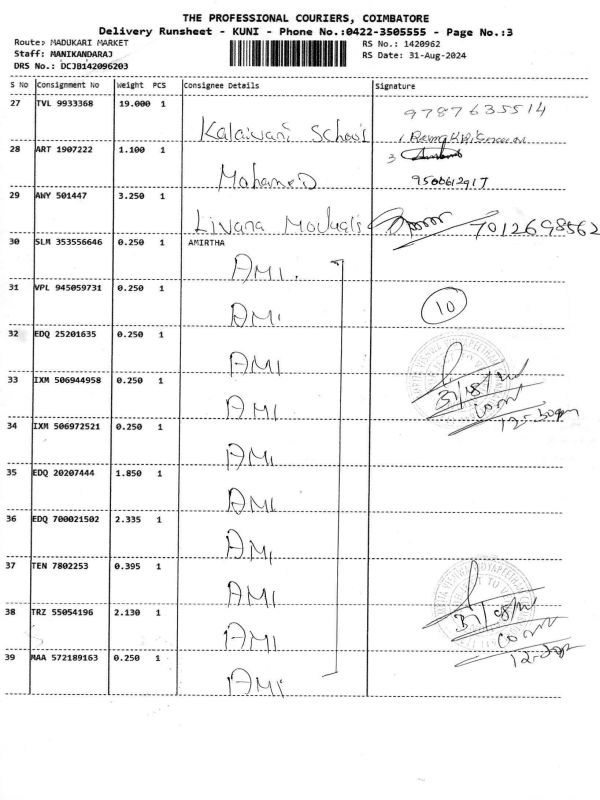 THE PROFESSIONAL COURIERS, COIMBATORE
Delivery Runsheet - KUNI - Phone No.:0422-3505555 - Page No.:3
Route: MADUKARI MARKET
RS No.: 1420962
Staff: MANIKANDARAJ
RS Date: 31-Aug-2024
DRS No.: DCJB142096203
S No Consignment No Weight PCS Consignee Details Signature
27 TVL 9933368 19.000 1 9787635514
Kalaivani School
28 ART 1907222 1.100 1 3
Mohamed 9500612917
29 AWY 501447 3.250 1
Livana 7012698562
30 SLM 353556646 0.250 1 AMIRTHA
AMI.
31 VPL 945059731 0.250 1
AMI 10
32 EDQ 25201635 0.250 1
AMI
33 IXM 506944958 0.250 1
AMI 31/08/24
34 IXM 506972521 0.250 1
AMI
35 EDQ 20207444 1.850 1
AMI
36 EDQ 700021502 2.335 1
AMI
37 TEN 7802253 0.395 1
AMI
38 TRZ 55054196 2.130 1 31/08/24
AMI
39 MAA 572189163 0.250 1
AMI